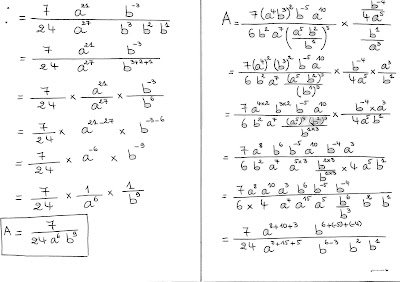 = 7/24 a²¹/a²⁷ b⁻³/(b³ b² b¹)
= 7/24 a²¹/a²⁷ b⁻³/b³⁺²⁺¹
= 7/24 × a²¹/a²⁷ × b⁻³/b⁶
= 7/24 × a²¹⁻²⁷ × b⁻³⁻⁶
= 7/24 × a⁻⁶ × b⁻⁹
= 7/24 × 1/a⁶ × 1/b⁹
A = 7/(24 a⁶ b⁹)
A = 7(a⁴b³)² b⁻⁵ a¹⁰/(6 b² a⁷ (a⁵ b²/b¹)³) × (b⁻⁴/4a⁵)/(b¹/a³)
= 7(a⁴)² (b³)² b⁻⁵ a¹⁰/(6 b² a⁷ (a⁵)³ (b²)³/(b¹)³) × b⁻⁴/4a⁵ × a³/b¹
= 7 a⁴ˣ² b³ˣ² b⁻⁵ a¹⁰/(6 b² a⁷ (a⁵)³ (b²)³/b¹ˣ³) × b⁻⁴ × a³/(4a⁵ b¹)
= 7 a⁸ b⁶ b⁻⁵ a¹⁰ b⁻⁴ a³/(6 b² a⁷ a⁵ˣ³ b²ˣ³/b¹ˣ³ × 4 a⁵ b¹)
= 7 a⁸ a¹⁰ a³ b⁶ b⁻⁵ b⁻⁴/(6 × 4 a⁷ a¹⁵ a⁵ b⁶/b³ b² b¹)
= 7/24 a⁸⁺¹⁰⁺³/a⁷⁺¹⁵⁺⁵ b⁶⁺⁽⁻⁵⁾⁺⁽⁻⁴⁾/(b⁶⁻³ b² b¹)